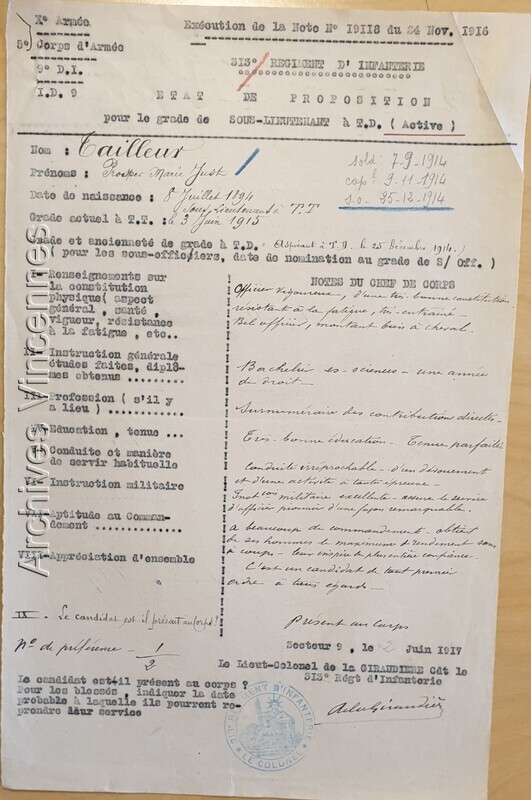 X° Armée
Exécution de la Note N° 19118 du 24 Nov. 1916
5° Corps d'Armée
9° D.I.
313° REGIMENT D'INFANTERIE
I.D. 9
ETAT DE PROPOSITION
pour le grade de SOUS-LIEUTENANT à T.D. ( Active )
Nom : Tailleur
Prénoms : Prosper Marie Just
sold: 7-9-1914
cap^l 9-11-1914
s.o. 25-12-1914
Date de naissance : 8 Juillet 1894
Sous Lieutenant à T.T
Grade actuel à T.T. : le 3 Juin 1915
Grade et ancienneté de grade à T.D. (Aspirant à T.D. le 25 Décembre 1914.)
( pour les sous-officiers, date de nomination au grade de S/ Off. )
I- Renseignements sur
la constitution
physique( aspect
général , santé ,
vigueur, résistance
à la fatigue , etc..
II- Instruction générale
études faites, diplô-
mes obtenus ..........
III- Profession ( s'il y
a lieu ) ............
IV- Education , tenue ...
V- Conduite et manière
de servir habituelle
VI- Instruction militaire
VII- Aptitude au Comman-
dement ...............
VIII-Appréciation d'ensemble
NOTES DU CHEF DE CORPS
Officier vigoureux, d'une très bonne constitution
résistant à la fatigue, très entraîné -
Bel officier, montant bien à cheval.
Bachelier ès-sciences - une année
de droit -
Surnuméraire des contributions directes -
Très bonne éducation - Tenue parfaite
Conduite irréprochable - d'un dévouement
et d'une activité à toute épreuve -
Inst^ion militaire excellente - assure le service
d'officier pionnier d'une façon remarquable.
A beaucoup de commandement - obtient
de ses hommes le maximum de rendement sans
à-coups - leur inspire la plus entière confiance.
C'est un candidat de tout premier
ordre à tous égards -
IX - Le candidat est il présent au Corps?
Présent au Corps
N° de préférence - 1/2
Secteur 9 , le 2 Juin 1917
Le Lieut-Colonel de la GIRAUDIERE Cdt le
313° Régt d'Infanterie
Le candidat est-il présent au corps ?
Pour les blessés, indiquer la date
probable à laquelle ils pourront re-
prendre leur service
A de la Giraudière
RÉGIMENT D'INFANTERIE
LE COLONEL
Archives Vincennes